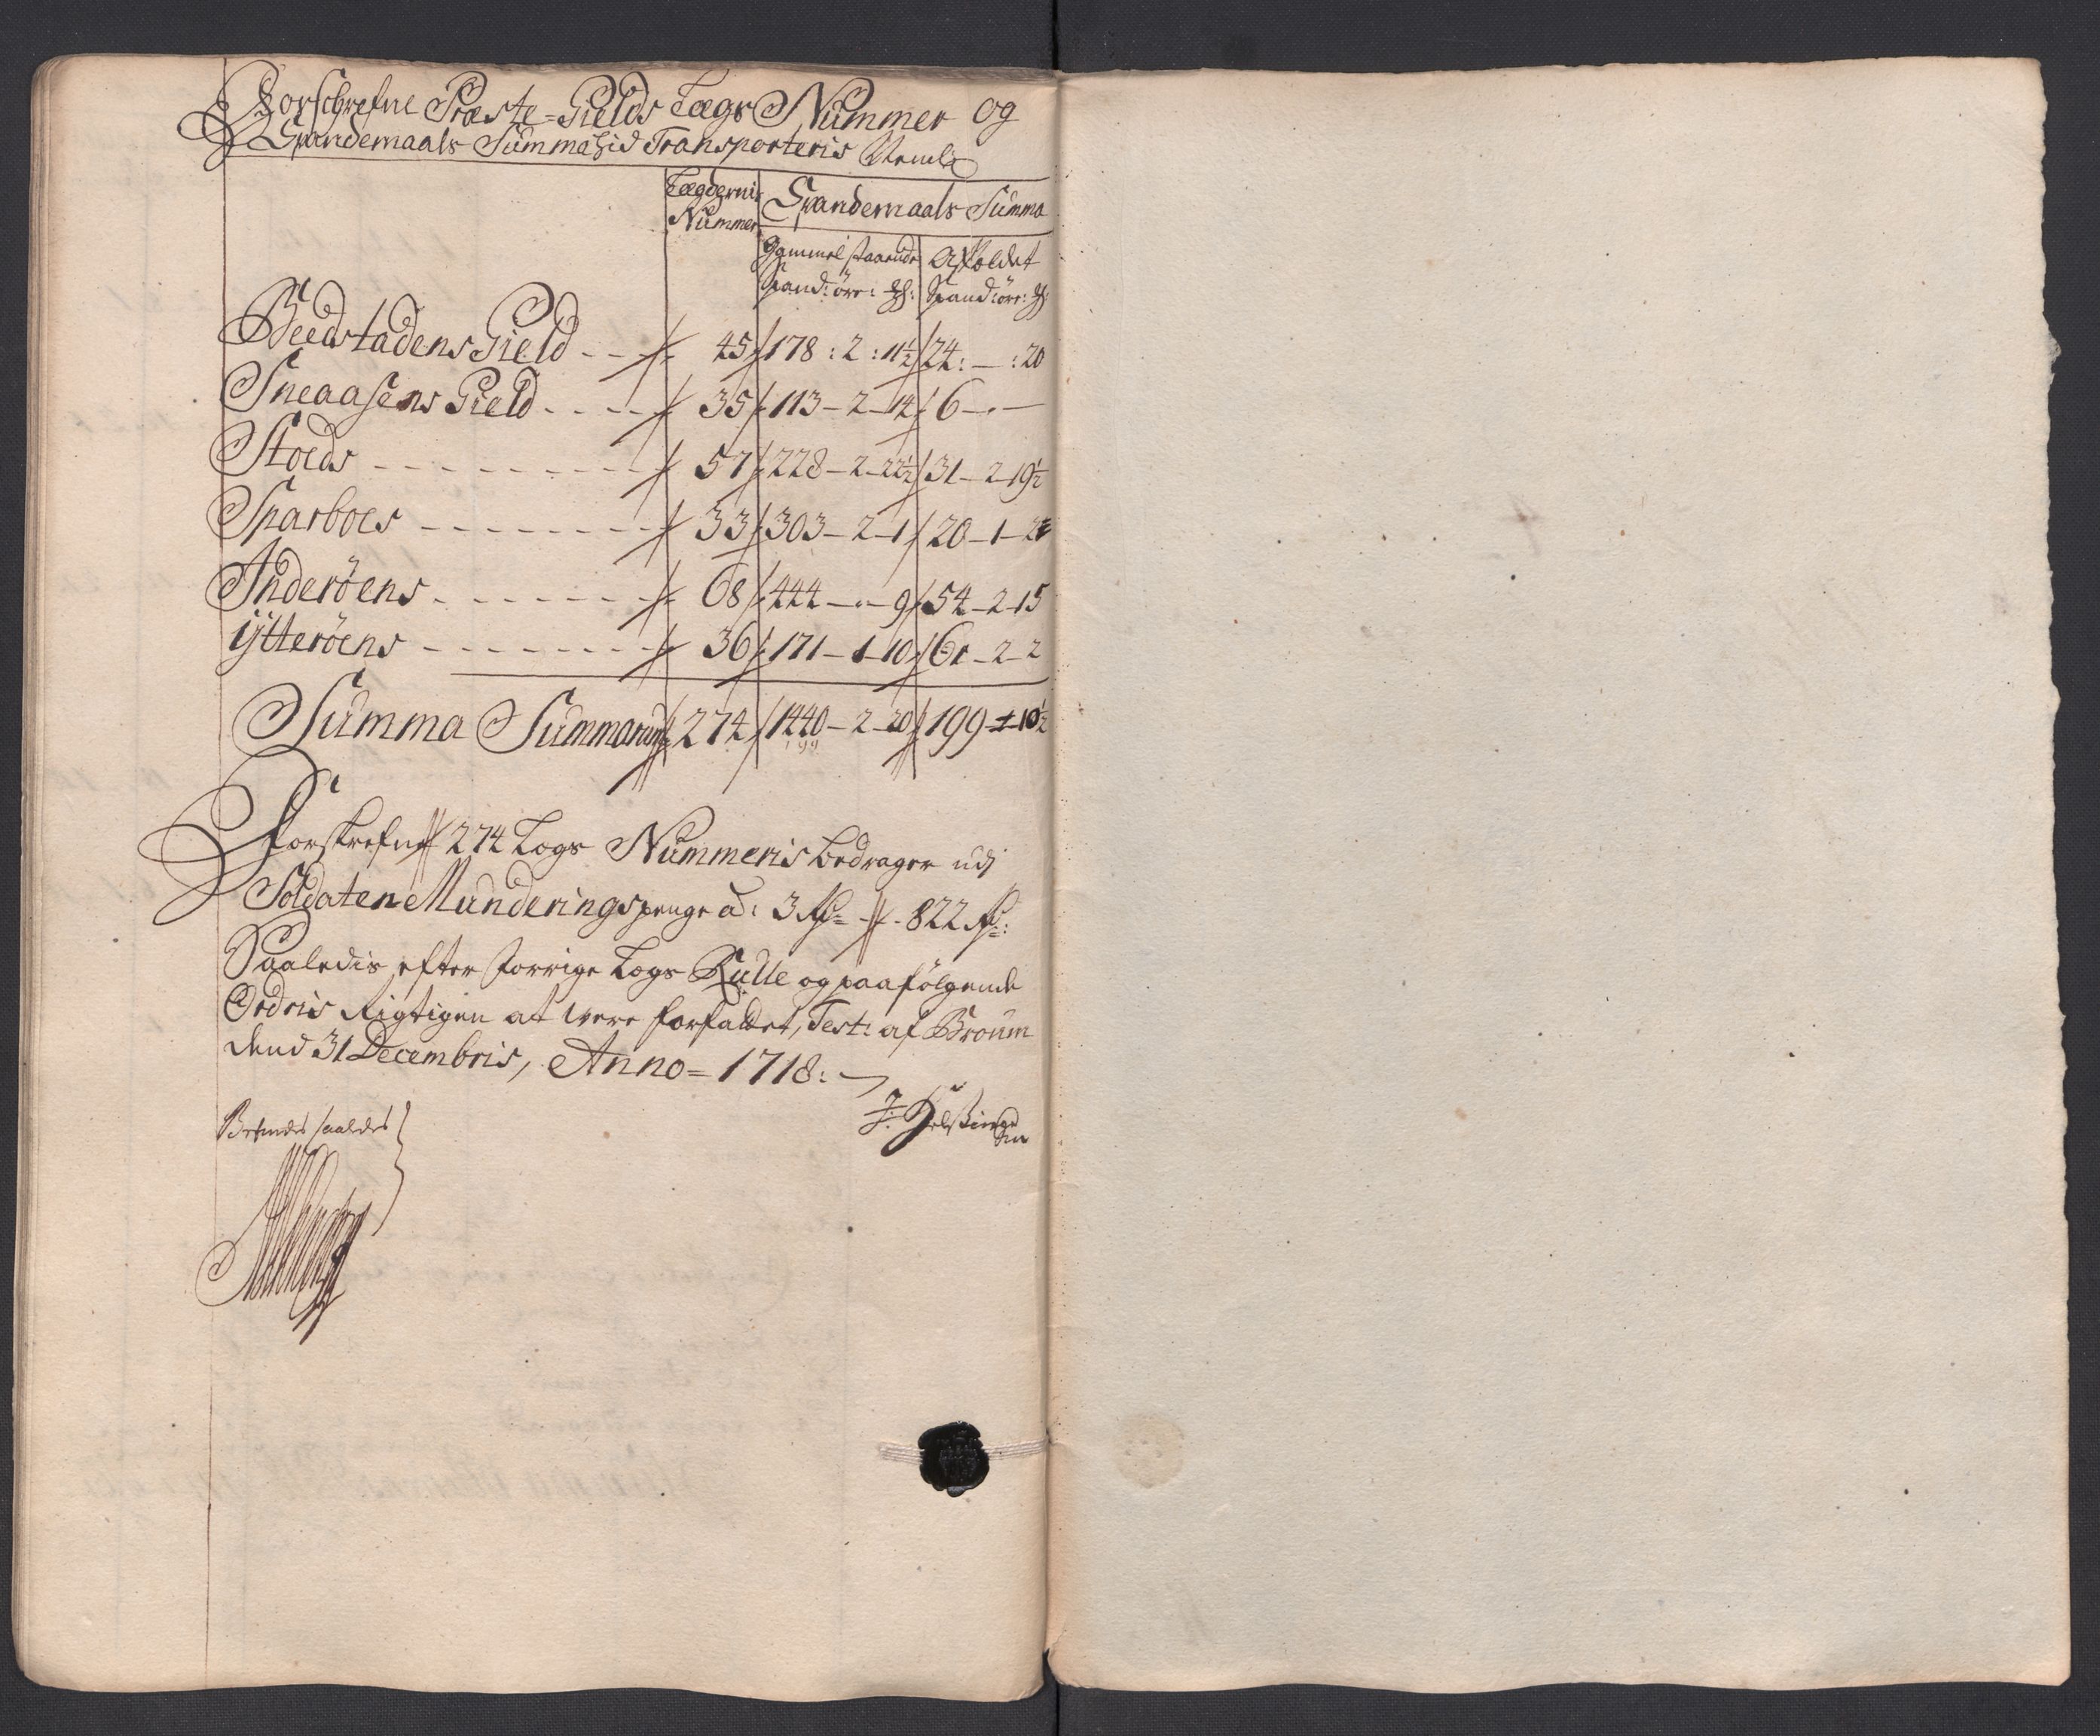 Forschrefne Præste-Gields Lægs Nummer og
Spandemaals Summa hid Transporteris Nemlig
Lægdernis Nummer
Spandemaals Summa
Gammel staaende Afkoldet
Spand: öre: Spand: öre:
Beedstadens Gield - - 45 178 : 2 : 11½ 24 : — : 20
Sneaasens Gield - - - - 35 113 - 2 - 14 6 - " -
Stoeds - - - - - - - 57 228 - 2 - 22½ 31 - 2 - 19½
Sparboes - - - - - - - 33 303 - 2 - 1 20 - 1 -
Inderöens - - - - - - 68 444 - " - 9 54 - 2 - 15
Ytteröens - - - - - - - 36 171 - 1 - 10 61 - 2 - 2
Summa Summarum 274 1440 - 2 - 20 199 - 10½
199
Forskrefne 274 Legs Nummeris bedrager udj
Soldaten Munderings penge á: 3 Rd - 822 Rd:
Saaledis efter forrige Legs Rulle og paafölgende
Ordris Rigtigen at were forfaldet, Test: af Broum
dend 31 Decembris, Anno = 1718: -
Befindes saaledes